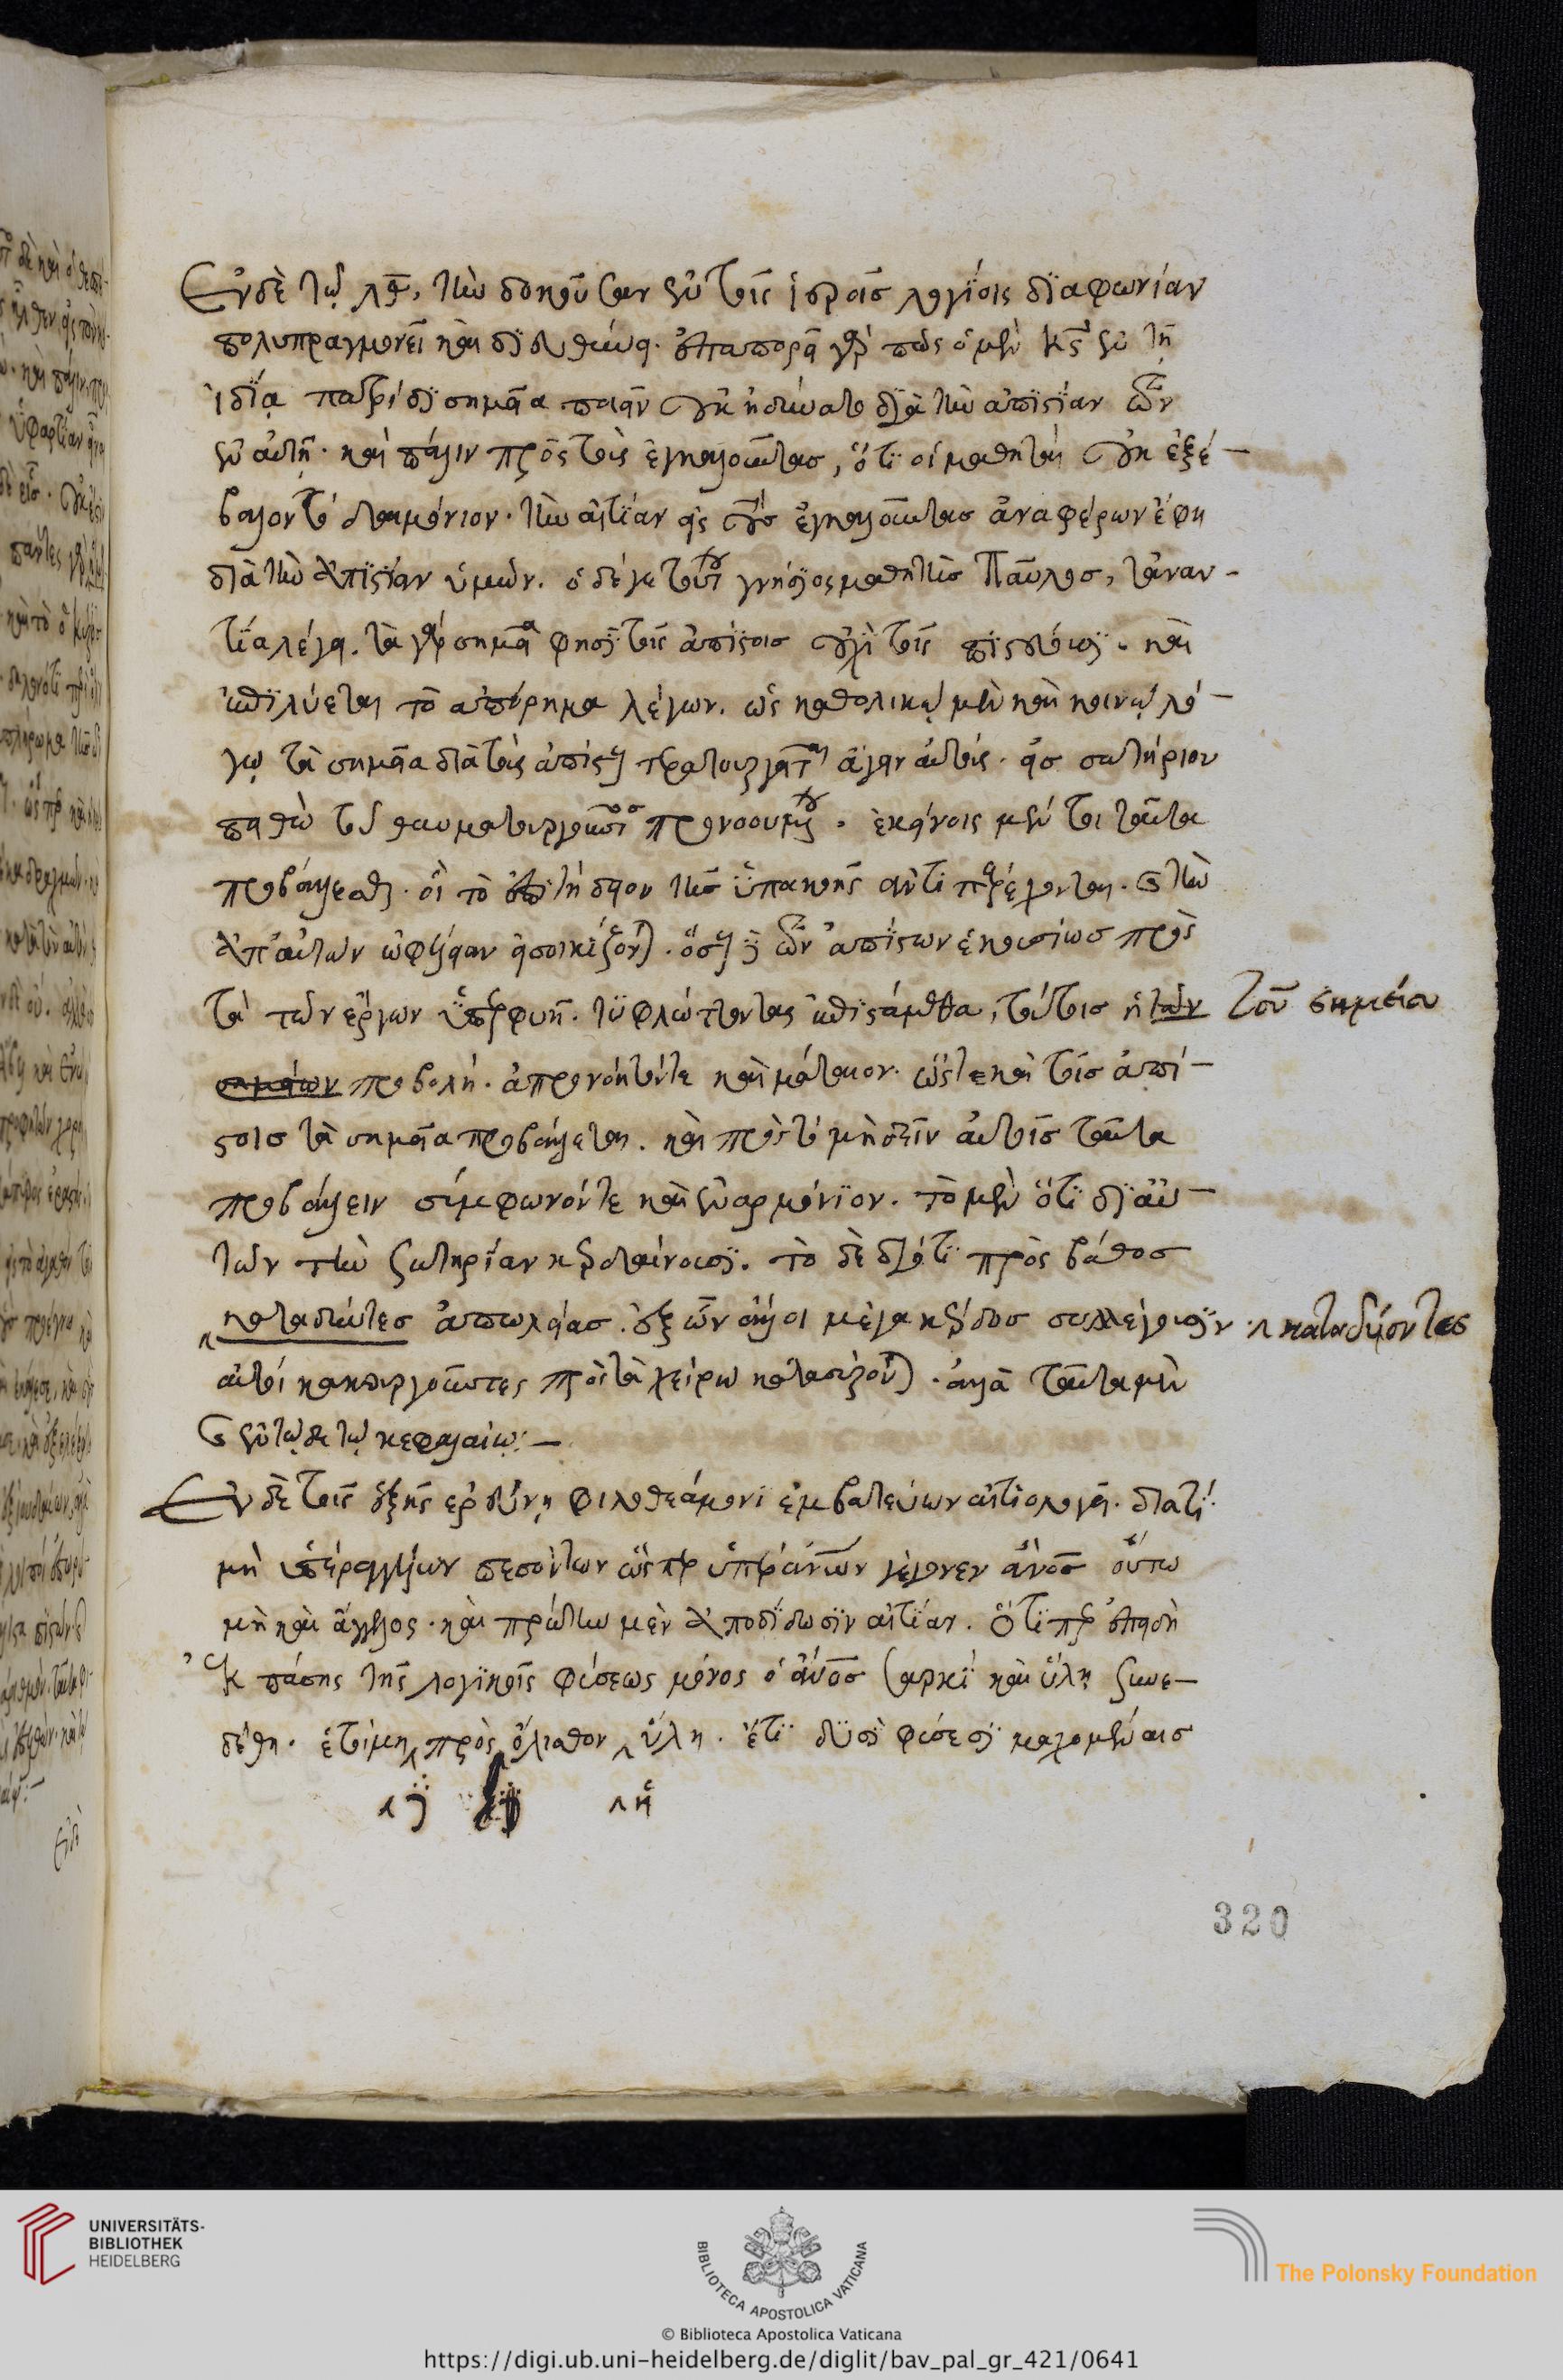 Ἐν δὲ τῷ λθ, τὴν δοκοῦσαν ἐν τοῖς ἱεροῖς λογίοις διαφωνίαν
πολυπραγμονεῖ καὶ διευθύνει. ἐπαπορεῖ γὰρ πῶς ὁ μὲν κς ἐν τῇ
ἰδίᾳ πατρίδι σημεῖα ποιεῖν οὐκ ἠδύνατο διὰ τὴν ἀπιστίαν τῶν
ἐν αὐτῇ. καὶ πάλιν πρὸς τοὺς ἐγκαλοῦντας, ὅτι οἱ μαθηταὶ οὐκ ἐξέ-
βαλον τὸ δαιμόνιον. τὴν αἰτίαν εἰς τοὺς ἐγκαλοῦντας ἀναφέρων ἔφη
διὰ τὴν ἀπιστίαν ὑμῶν. ὁ δέ γε τούτου γνήσιος μαθητὴς Παῦλος, τἀναν-
τία λέγει. τὰ γὰρ σημεῖα φησὶ τοῖς ἀπίστοις οὐχὶ τοῖς πιστεύουσι. καὶ
ἐπιλύεται τὸ ἀπόρημα λέγων. ὡς καθολικῷ μὲν καὶ κοινῷ λό-
γῳ τὰ σημεῖα διὰ τοὺς ἀπίστους τερατουργεῖται ἄγειν αὐτοὺς εἰς σωτήριον
πειθὼ τοῦ θαυματουργοῦντος προνοουμένου. ἐκείνοις μέν τοι ταῦτα
προβάλλεσθαι. οἳ τὸ ἐπιτήδειον τῆς ὑπακοῆς ἀντιπαρέχονται. καὶ τὴν
ἀπ' αὐτῶν ὠφέλειαν εἰσοικίζονται. ὅσους δὲ τῶν ἀπίστων ἑκουσίως πρὸς
τὰ τῶν ἔργων ὑπερφυῆ. τυφλώττοντας ἐπιστάμεθα, τούτοις ἡ τῶν τοῦ σημείου
σημείων προβολὴ. ἀπρονόητόν τε καὶ μάταιον. ὥστε καὶ τοῖς ἀπί-
στοις τὰ σημεῖα προβάλλεται. καὶ πρὸς τὸ μὴ δεῖν αὐτοῖς ταῦτα
προβάλλειν σύμφωνόν τε καὶ ἐναρμόνιον. τὸ μὲν ὅτι δι' αὐ-
τῶν τὴν σωτηρίαν κερδαίνουσι. τὸ δὲ διότι πρὸς βάθος
καταδύντες ἀπωλείας. ἐξ ὧν ἄλλοι μέγα κέρδος συλλέγουσιν καταδύσοντες
αὐτοὶ κακουργοῦντες πρὸς τὰ χείρω κατασύρονται. ἀλλὰ ταῦτα μὲν
καὶ ἐν τῷδε τῷ κεφαλαίῳ:—
Ἐν δὲ τοῖς ἑξῆς ἐρευνῃ φιλοθεάμονι ἐμβατεύων αἰτιολογεῖ. διατί
μὴ ὑπὲρ ἀγγέλων πεσόντων ὥσπερ ὑπὲρ ἀνων γέγονεν ἄνος οὕτω
μὴ καὶ ἄγγελος. καὶ πρώτην μὲν ἀποδίδωσιν αἰτίαν. ὅτιπερ ἐπειδὴ
ἐκ πάσης τῆς λογικῆς φύσεως μόνος ὁ ἄνος σαρκὶ καὶ ὕλῃ συνε-
δέθη. ἑτοίμη πρὸς ὄλισθον ὕλη. ἔτι δυσὶ φύσεσι μαχομέναις
ἡ
320
UNIVERSITÄTS-
BIBLIOTHEK
HEIDELBERG
BIBLIOTECA APOSTOLICA VATICANA
The Polonsky Foundation
© Biblioteca Apostolica Vaticana
https://digi.ub.uni-heidelberg.de/diglit/bav_pal_gr_421/0641